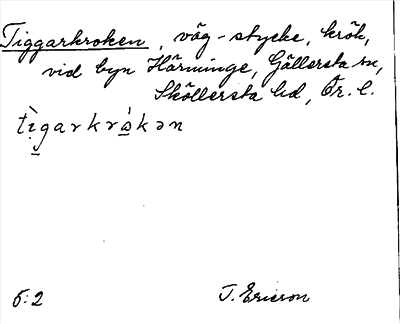 Tiggarkroken, väg-stycke, krök,
vid byn Härminge, Gällersta sn,
Sköllersta hd, Ör. l.
tìgarkrókən
5:2 T. Ericson